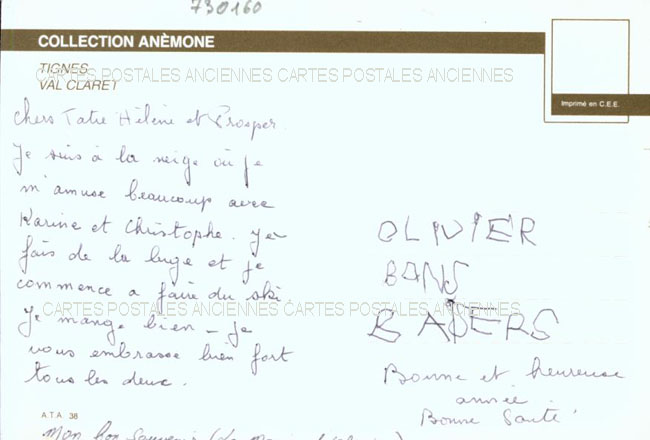 730160
COLLECTION ANÈMONE
TIGNES
VAL CLARET
CARTES POSTALES ANCIENNES CARTES POSTALES ANCIENNES
Imprimé en C.E.E.
chers Tatie Hélène et Prosper.
Je suis à la neige où je
m'amuse beaucoup avec
Karine et Christophe. Je
fais de la luge et je
commence a faire du ski
CARTES POSTALES ANCIENNES CARTES POSTALES ANCIENNES
Je mange bien - Je
vous embrasse bien fort
tous les deux.
OLIVIER
BANS
BAPERS
Bonne et heureuse
année
Bonne Santé
A.T.A. 38
Mon bon souvenir